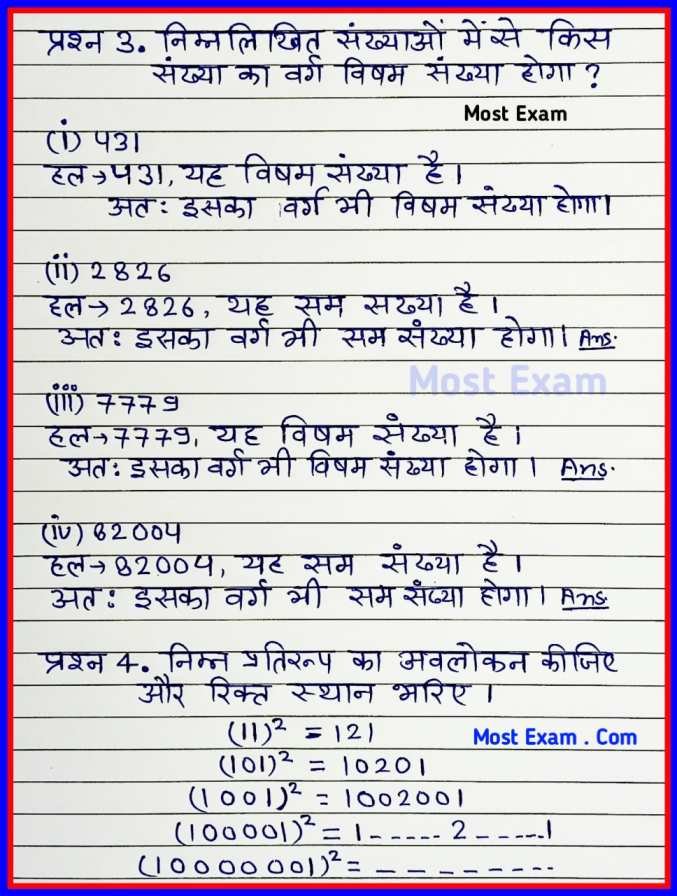 प्रश्न 3. निम्नलिखित संख्याओं में से किस
संख्या का वर्ग विषम संख्या होगा ?
Most Exam
(i) 431
हल→431, यह विषम संख्या है।
अतः इसका वर्ग भी विषम संख्या होगा।
(ii) 2826
हल→ 2826, यह सम सख्या है।
अतः इसका वर्ग भी सम संख्या होगा। Ans.
Most Exam
(iii) 7779
हल→7779, यह विषम संख्या है।
अतः इसका वर्ग भी विषम संख्या होगा। Ans.
(iv) 82004
हल→ 82004, यह सम संख्या है।
अतः इसका वर्ग भी सम संख्या होगा। Ans.
प्रश्न 4. निम्न प्रतिरूप का अवलोकन कीजिए
और रिक्त स्थान भरिए।
(11)² = 121
Most Exam . Com
(101)² = 10201
(1001)² = 1002001
(100001)² = 1------2-----1
(10000001)² = ---------